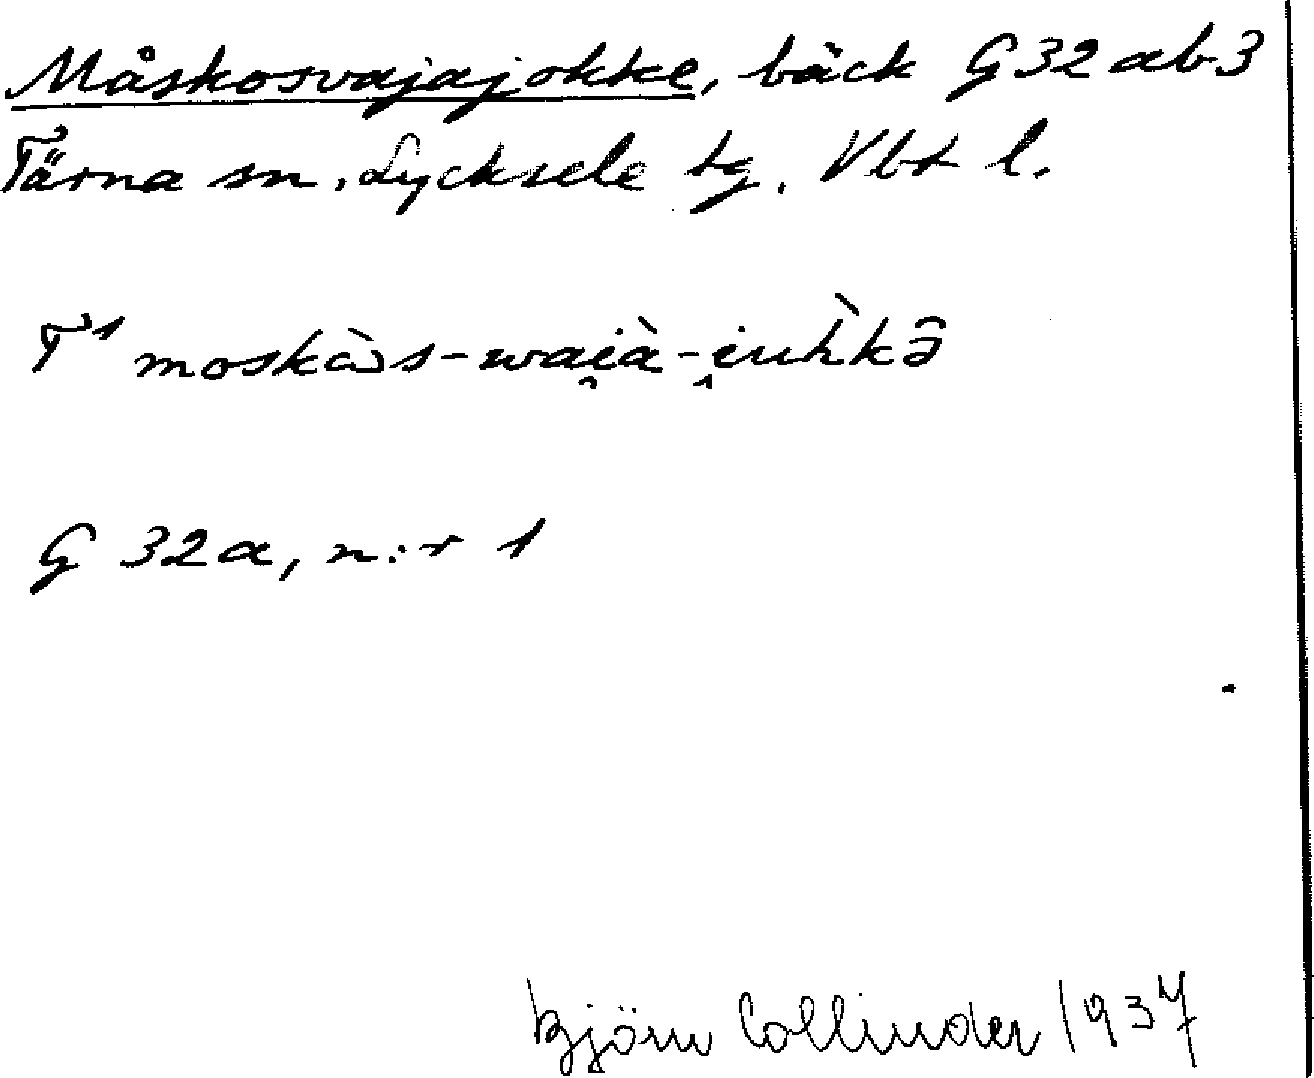 Måskosvajajokke, bäck G 32 ab 3
Tärna sn, Lycksele tg. Vbt l.
T¹ moskɑ̀s-wai̯à-i̯uh̀kə̑
G 32a, n:r 1
Björn Collinder 1937